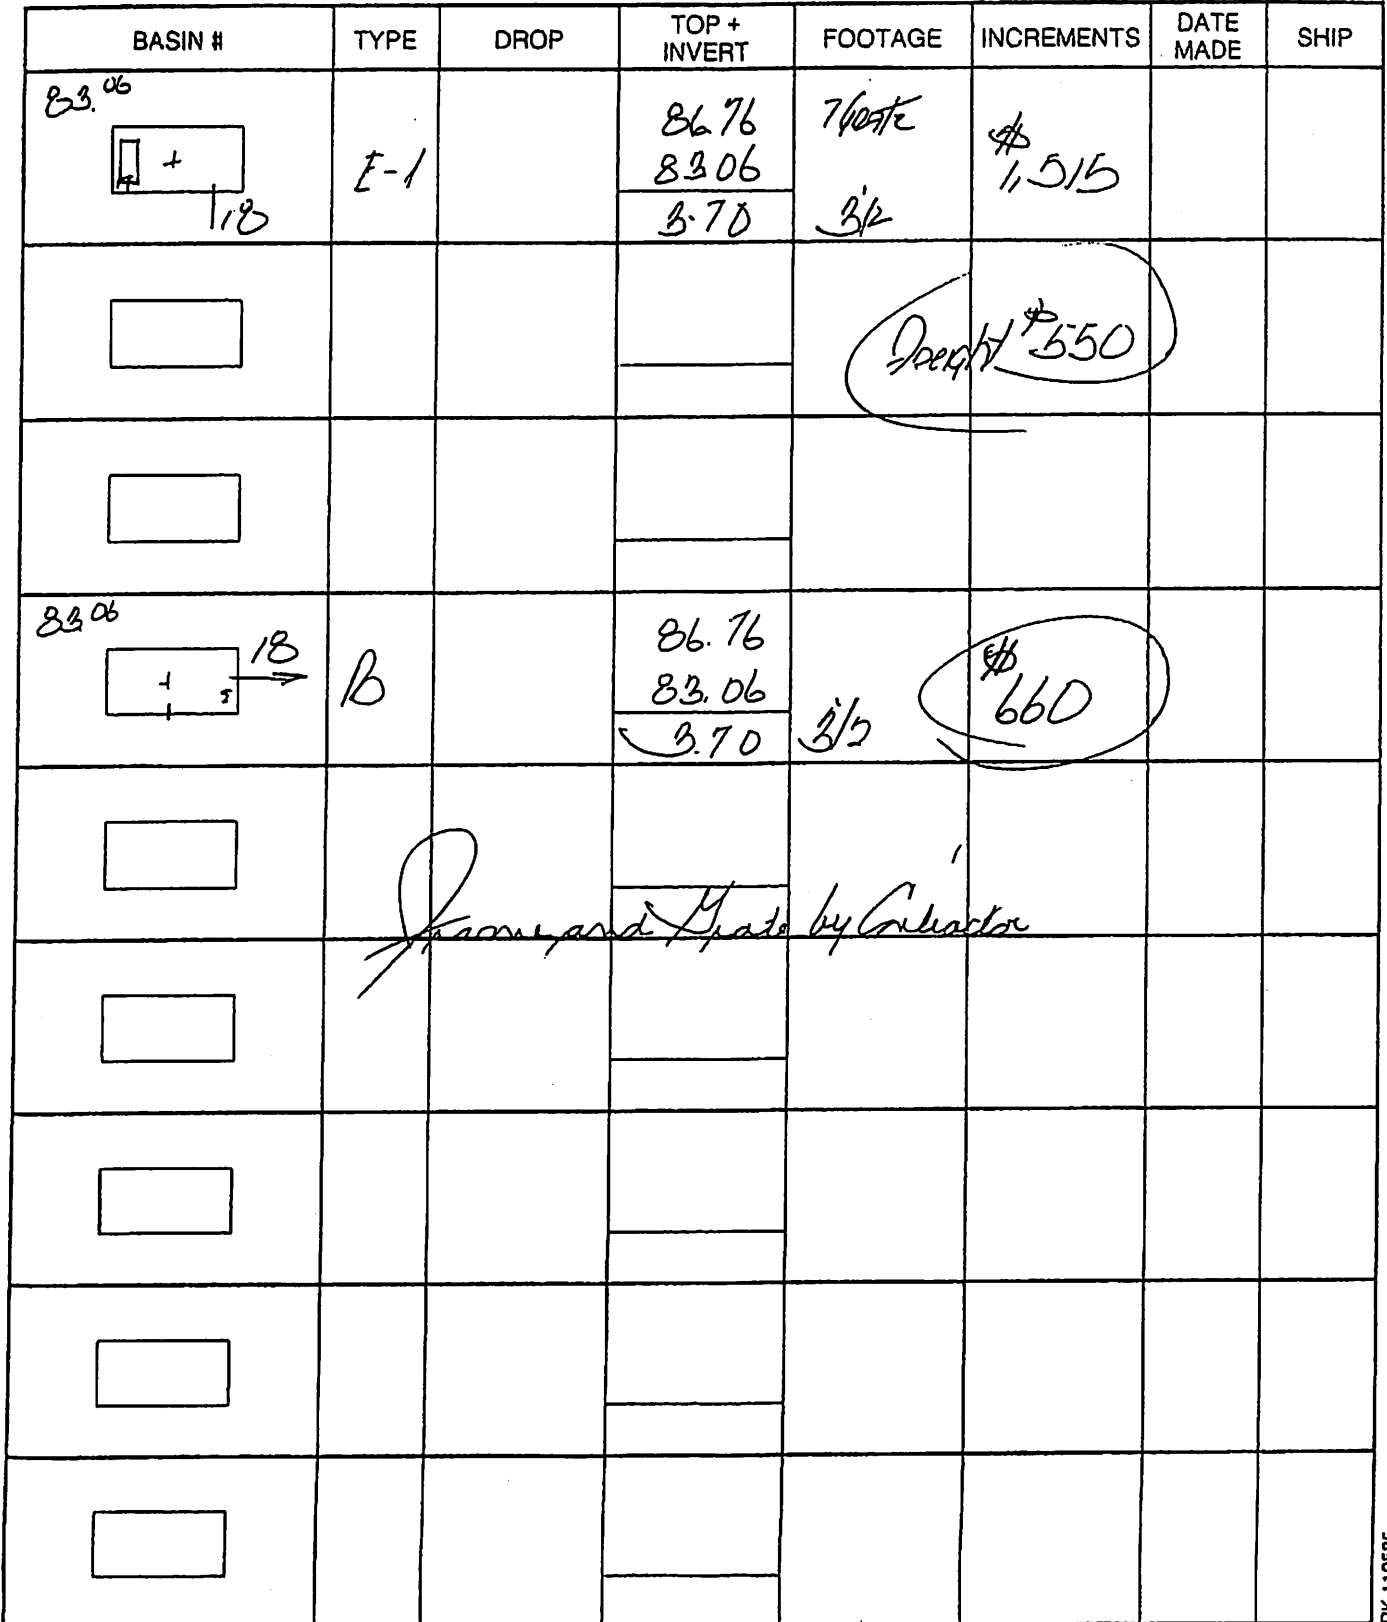 BASIN # TYPE DROP TOP + INVERT FOOTAGE INCREMENTS DATE MADE SHIP
83.06
86.76
83.06
E-1
$1,515
18
3.70
3½
Freight $550
83.06
86.76
18
B
83.06
$660
3.70
3½
Frame and Grate by Contractor